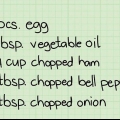 pcs. egg
tbsp. vegetable oil
cup chopped ham
tbsp. chopped bell pep
tbsp. chopped onion